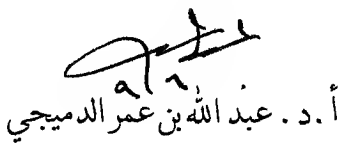 أ.د. عبد الله بن عمر الدميجي